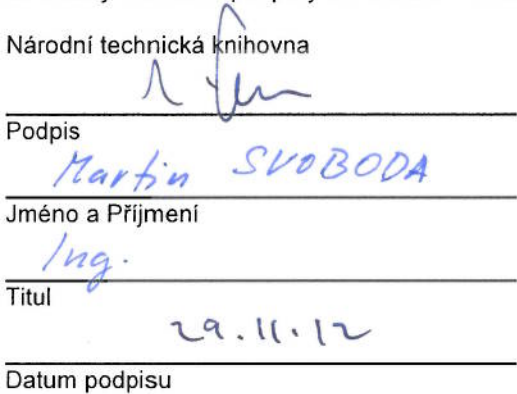 Národní technická knihovna
Podpis
Martin SVOBODA
Jméno a Příjmení
Ing.
Titul
29.11.12
Datum podpisu